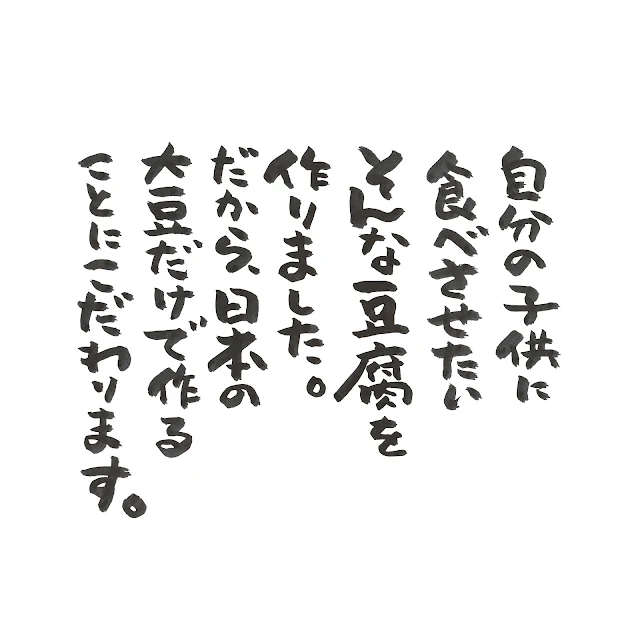 自分の子供に
食べさせたい
そんな豆腐を
作りました。
だから、日本の
大豆だけで作る
ことにこだわります。